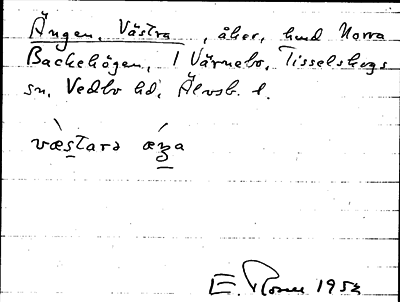 Ängen, Västra, åker, hmd Norra
Backehögen, 1 Värnebo, Tisselskogs
sn, Vedbo hd, Älvsb. l.
væstarə æŋa
E. 1952